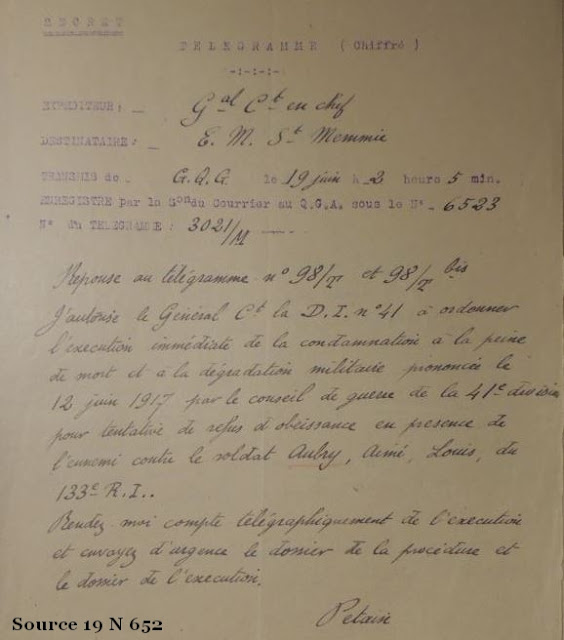 SECRET
TELEGRAMME ( Chiffré )
-:-:-:-
EXPEDITEUR: _ Gal Ct en chef
DESTINATAIRE: _ E. M. St Memmie
TRANSMIS de - G.Q.G. le 19 juin à 2 heures 5 min.
ENREGISTRE par la Son du Courrier au Q.G.A. sous le N°- 6523
N° du TELEGRAMME : 3021/M -----
Réponse au télégramme n° 98/ et 98/ bis
J'autorise le Général Ct la D.I. n° 41 à ordonner
l'exécution immédiate de la condamnation à la peine
de mort et à la dégradation militaire prononcée le
12 juin 1917 par le conseil de guerre de la 41e division
pour tentative de refus d'obéissance en présence de
l'ennemi contre le soldat Aubry, Aimé, Louis, du
133e R.I..
Rendez moi compte télégraphiquement de l'exécution
et envoyez d'urgence le dossier de la procédure et
le dossier de l'exécution.
Petain
Source 19 N 652